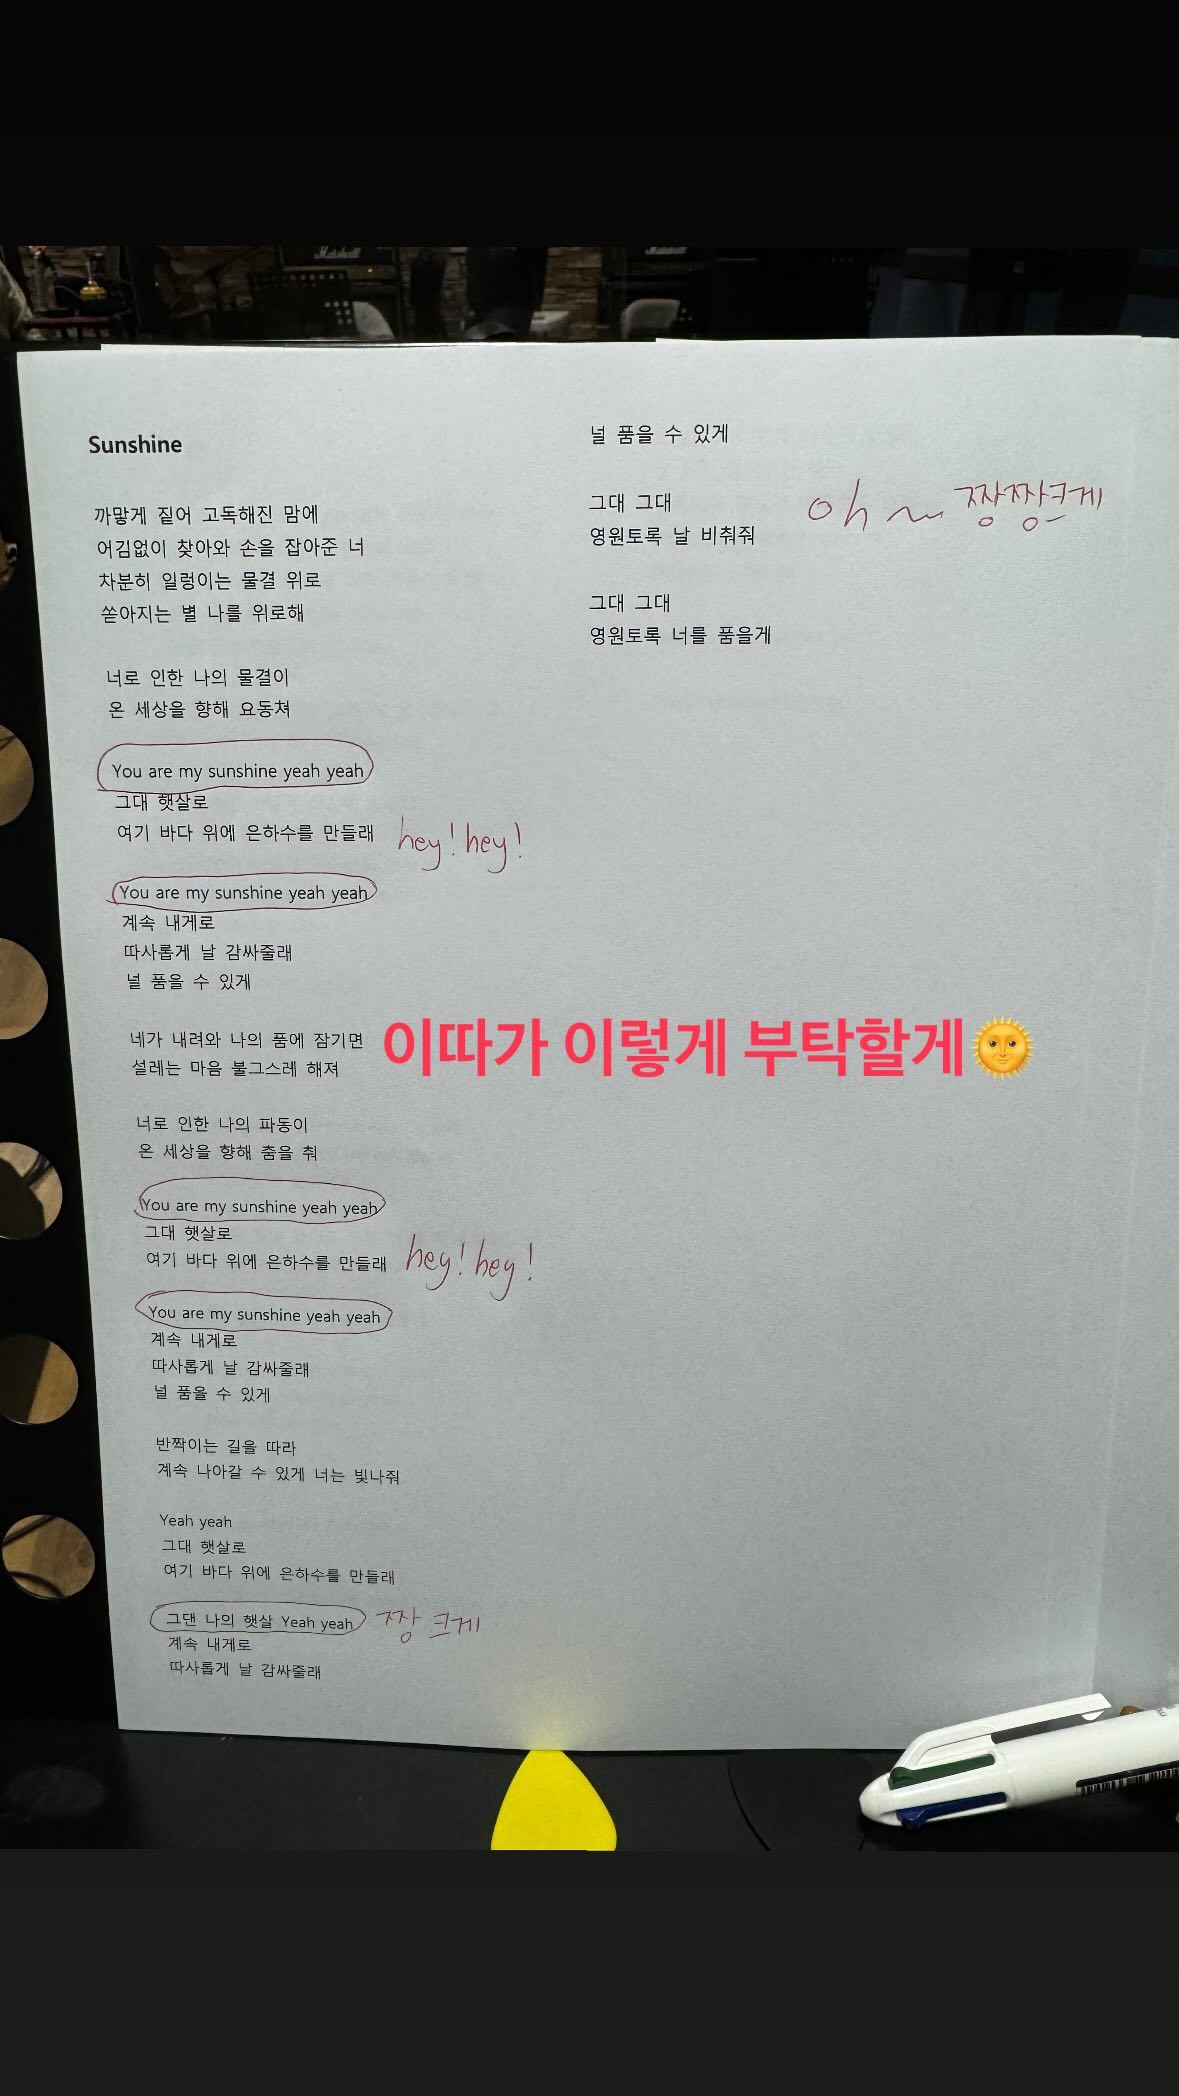 Marshall
Sunshine
까맣게 짙어 고독해진 맘에
어김없이 찾아와 손을 잡아준 너
차분히 일렁이는 물결 위로
쏟아지는 별 나를 위로해
너로 인한 나의 물결이
온 세상을 향해 요동쳐
You are my sunshine yeah yeah
그대 햇살로
여기 바다 위에 은하수를 만들래 hey! hey!
You are my sunshine yeah yeah
계속 내게로
따사롭게 날 감싸줄래
널 품을 수 있게
네가 내려와 나의 품에 잠기면
설레는 마음 붉그스레 해져
이따가 이렇게 부탁할게🌞
너로 인한 나의 파동이
온 세상을 향해 춤을 춰
You are my sunshine yeah yeah
그대 햇살로
여기 바다 위에 은하수를 만들래 hey! hey!
You are my sunshine yeah yeah
계속 내게로
따사롭게 날 감싸줄래
널 품을 수 있게
반짝이는 길을 따라
계속 나아갈 수 있게 너는 빛나줘
Yeah yeah
그대 햇살로
여기 바다 위에 은하수를 만들래
그댄 나의 햇살 Yeah yeah 짱 크게
계속 내게로
따사롭게 날 감싸줄래
널 품을 수 있게
그대 그대
영원토록 날 비춰줘
oh ~ 짱짱크게
그대 그대
영원토록 너를 품을게